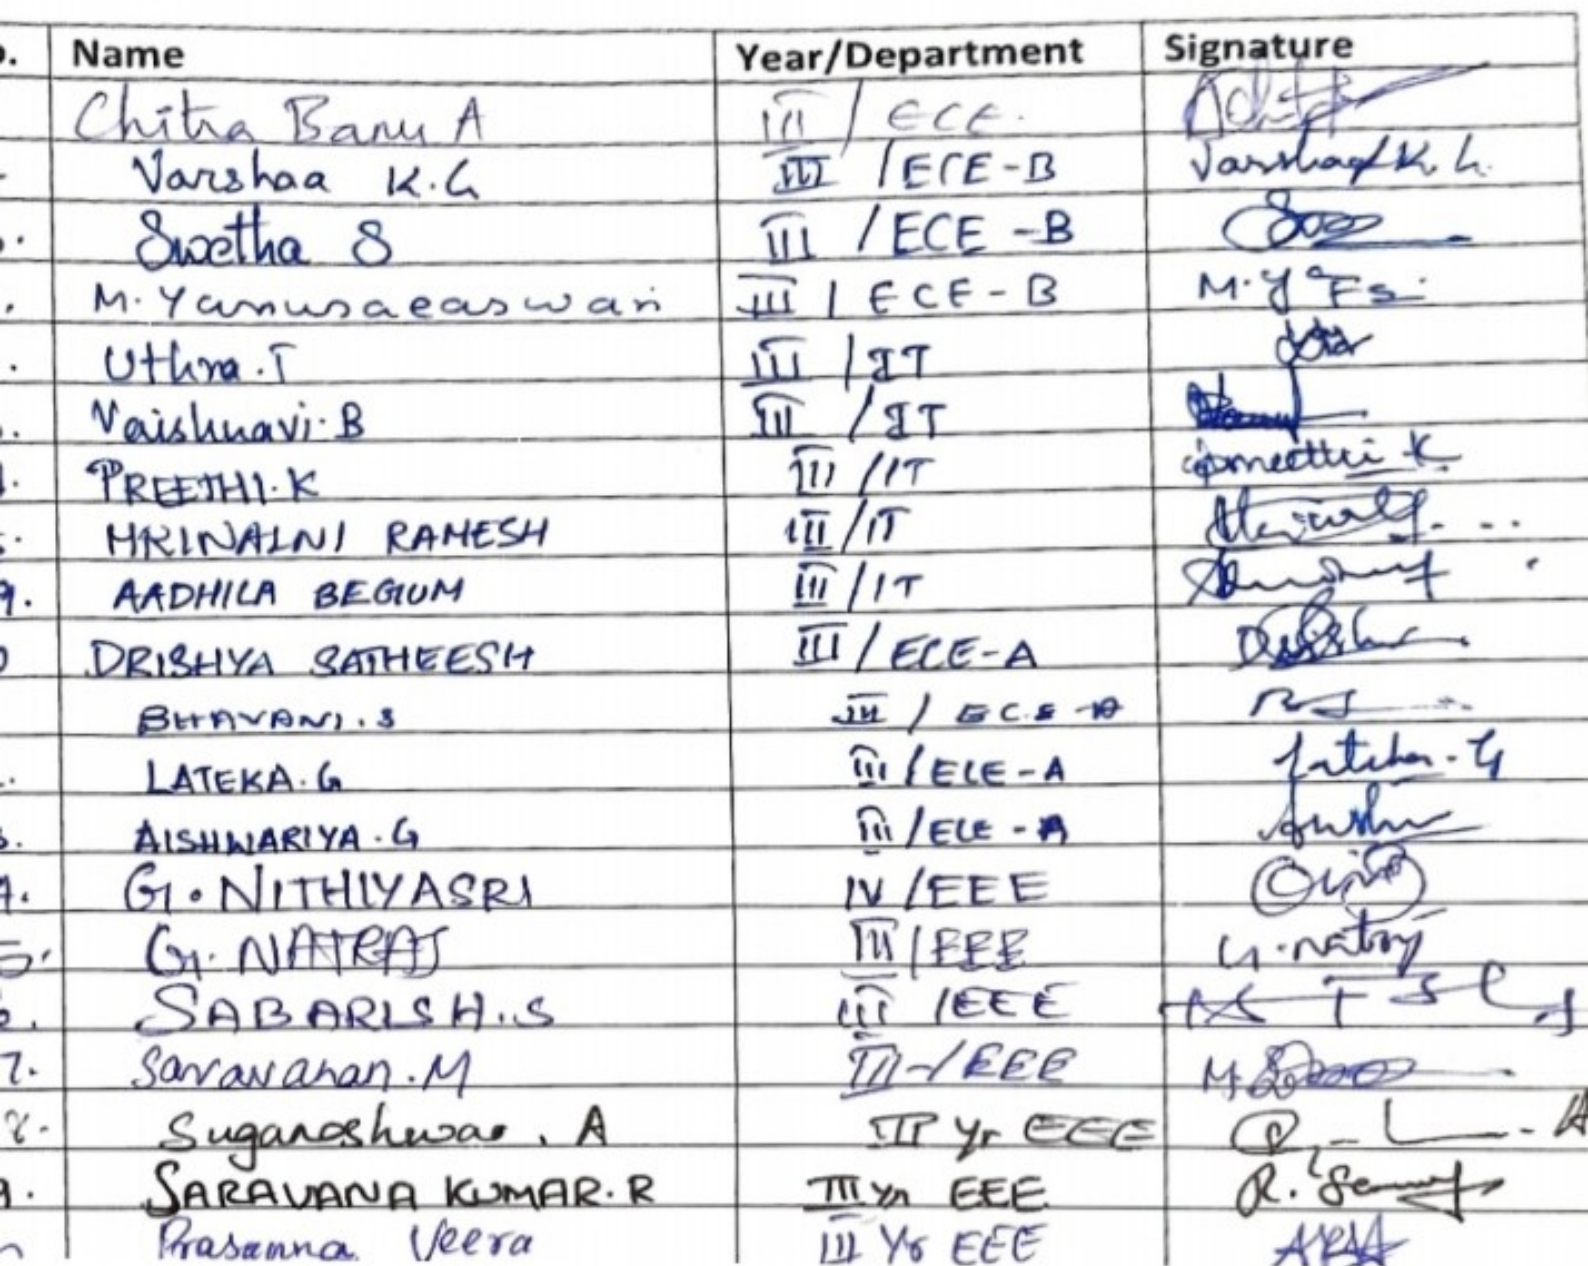 Name Year/Department Signature
Chitra Banu A III / ECE.
Varshaa K.G III / ECE-B Varshaa K. G.
Swetha S III / ECE -B
M. Yamusaeaswari III / ECE-B M.Y
Uthra.T III / IT
Vaishnavi.B III / IT
PREETHI.K III / IT Preethi K
MRINALNI RAMESH III / IT
9. AADHILA BEGUM III / IT
DRISHYA SATHEESH III / ECE-A
BHAVANI.S III / ECE-A
LATEKA.G III / ECE-A Lateka.G
AISHWARIYA.G III / ECE-A
G.NITHIYASRI IV /EEE
5. G.NATRAJ III /EEE G.Natraj
SABARISH.S III /EEE
7. Saravanan.M III-/EEE M.
8. A III Yr EEE
9. SARAVANA KUMAR.R III yr EEE R.
Prasanna Veera III Yr EEE